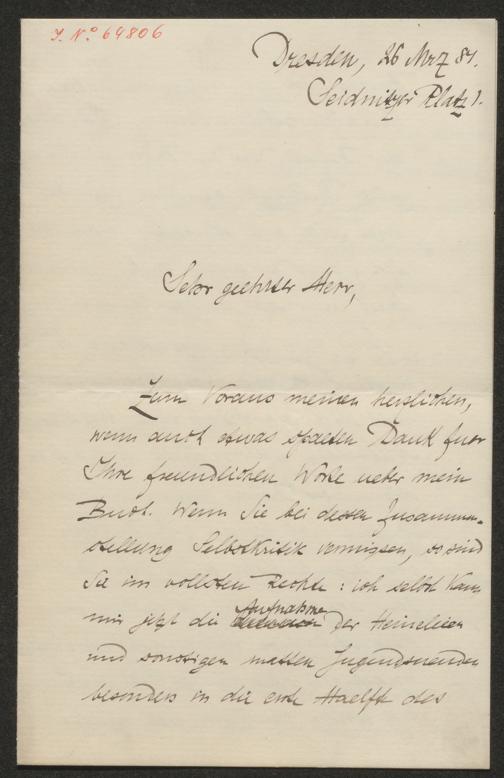 J. N.º 64806
Dresden, 26 Mrz 84.
Seidnitzer Platz 1.
Sehr geehrter Herr,
Zum Voraus meinen herzlichen,
wenn auch etwas spaeten Dank fuer
Ihre freundlichen Worte ueber mein
Buch. Wenn Sie bei dessen Zusammen-
stellung Selbstkritik vermissen, so sind
Sie im vollsten Rechte: ich selbst kann
mir jetzt die Aufnahme der Heineleien
und sonstigen matten
besonders in die erste Haelfte des